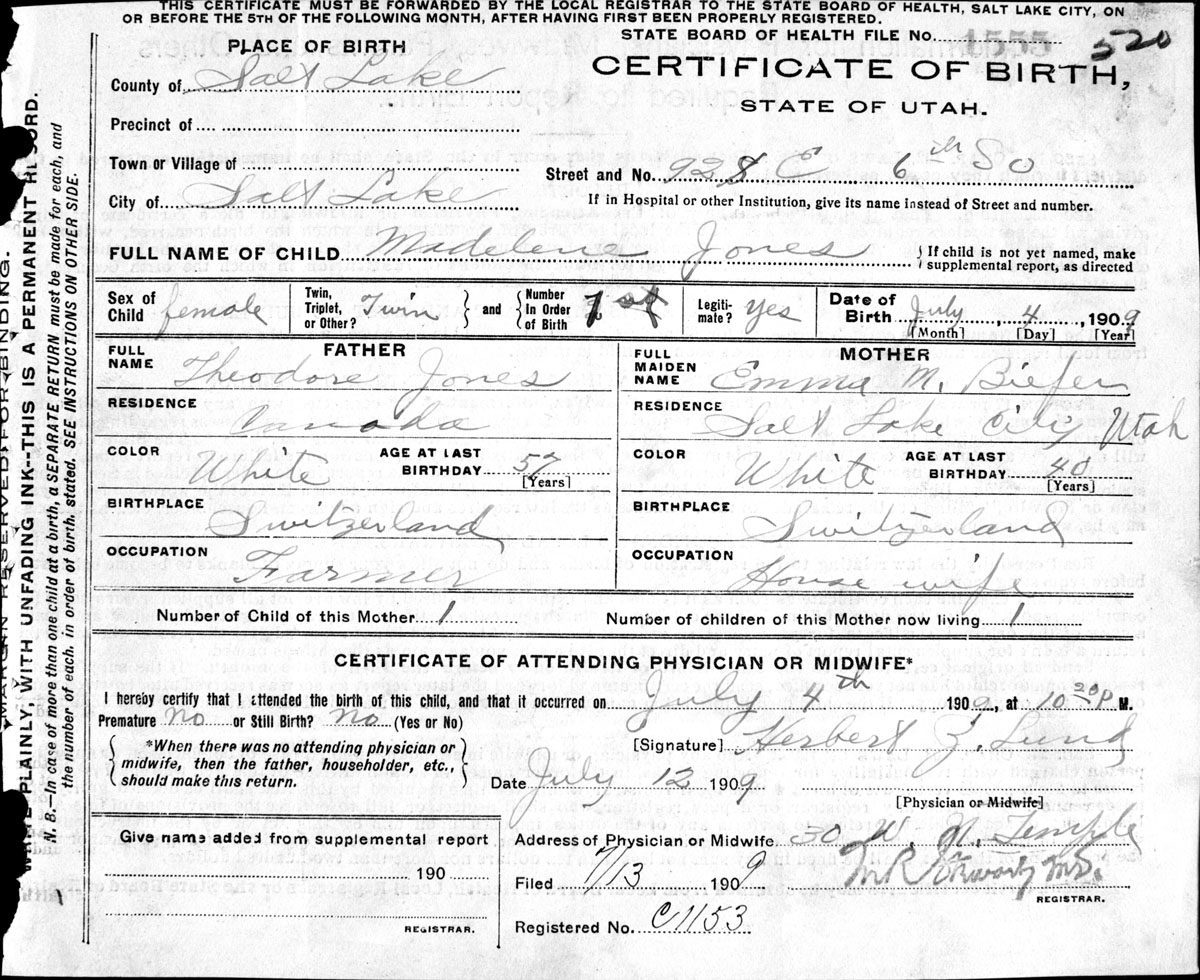 THIS CERTIFICATE MUST BE FORWARDED BY THE LOCAL REGISTRAR TO THE STATE BOARD OF HEALTH, SALT LAKE CITY, ON
OR BEFORE THE 5TH OF THE FOLLOWING MONTH, AFTER HAVING FIRST BEEN PROPERLY REGISTERED.
STATE BOARD OF HEALTH FILE No. 1555 520
PLACE OF BIRTH
CERTIFICATE OF BIRTH,
STATE OF UTAH.
County of Salt Lake
Precinct of
Town or Village of
Street and No. 928 E 6th So
City of Salt Lake
If in Hospital or other Institution, give its name instead of Street and number.
FULL NAME OF CHILD Madelene Jones
If child is not yet named, make
supplemental report, as directed
Sex of Child female
Twin, Triplet, or Other? Twin and
Number In Order of Birth 1st
Legiti-mate? Yes
Date of Birth July 4 1909
[Month] [Day] [Year]
FATHER
FULL NAME Theodore Jones
RESIDENCE Canada
COLOR White AGE AT LAST BIRTHDAY 57
[Years]
BIRTHPLACE Switzerland
OCCUPATION Farmer
MOTHER
FULL MAIDEN NAME Emma M. Biefer
RESIDENCE Salt Lake City Utah
COLOR White AGE AT LAST BIRTHDAY 40
[Years]
BIRTHPLACE Switzerland
OCCUPATION House wife
Number of Child of this Mother 1
Number of children of this Mother now living 1
CERTIFICATE OF ATTENDING PHYSICIAN OR MIDWIFE*
I hereby certify that I attended the birth of this child, and that it occurred on July 4th 1909, at 10 20 P M.
Premature no or Still Birth? no (Yes or No)
*When there was no attending physician or
midwife, then the father, householder, etc.,
should make this return.
[Signature] Herbert Z. Lund
Date July 12 1909
[Physician or Midwife]
Give name added from supplemental report
190
REGISTRAR.
Address of Physician or Midwife 30 W. N. Temple
Filed 7/13 1909
REGISTRAR.
Registered No. C1153
MARGIN RESERVED FOR BINDING.
PLAINLY, WITH UNFADING INK--THIS IS A PERMANENT RECORD.
N. B.--In case of more than one child at a birth, a SEPARATE RETURN must be made for each, and
the number of each, in order of birth, stated. SEE INSTRUCTIONS ON OTHER SIDE.